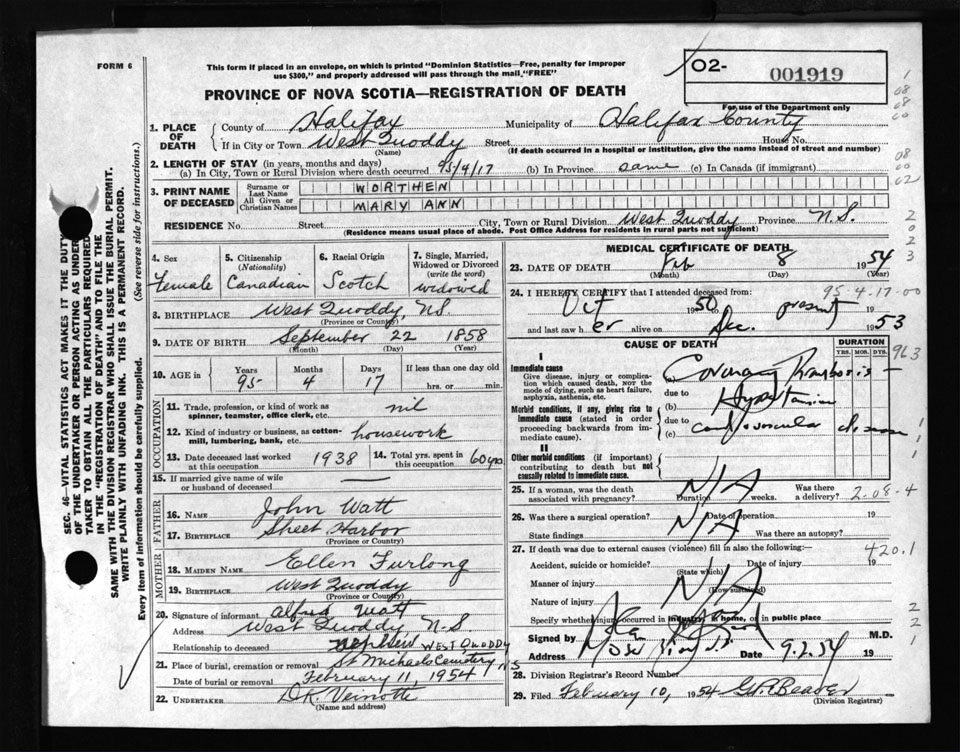 FORM 6
This form if placed in an envelope, on which is printed "Dominion Statistics—Free, penalty for improper
use $300," and properly addressed will pass through the mail "FREE"
O2-
001919
PROVINCE OF NOVA SCOTIA—REGISTRATION OF DEATH
For use of the Department only
1. PLACE OF DEATH
County of Halifax Municipality of Halifax County
If in City or Town West Quoddy Street House No.
(Name) (If death occurred in a hospital or institution, give the name instead of street and number)
2. LENGTH OF STAY (in years, months and days)
(a) In City, Town or Rural Division where death occurred 95/4/17 (b) In Province same (c) In Canada (if immigrant)
3. PRINT NAME OF DECEASED
Surname or Last Name WORTHEN
All Given or Christian Names MARY ANN
RESIDENCE No. Street City, Town or Rural Division West Quoddy Province N.S.
(Residence means usual place of abode. Post Office Address for residents in rural parts not sufficient)
4. Sex
Female
5. Citizenship (Nationality)
Canadian
6. Racial Origin
Scotch
7. Single, Married, Widowed or Divorced (write the word)
widowed
8. BIRTHPLACE West Quoddy, N.S.
(Province or County)
9. DATE OF BIRTH September 22 1858
(Month) (Day) (Year)
10. AGE in Years Months Days If less than one day old
95 4 17 hrs. or min.
OCCUPATION
11. Trade, profession, or kind of work as spinner, teamster, office clerk, etc. nil
12. Kind of industry or business, as cotton-mill, lumbering, bank, etc. housework
13. Date deceased last worked at this occupation 1938
14. Total yrs. spent in this occupation 60 yrs
15. If married give name of wife or husband of deceased —
FATHER
16. NAME John Watt
17. BIRTHPLACE Sheet Harbor
(Province or Country)
MOTHER
18. MAIDEN NAME Ellen Furlong
19. BIRTHPLACE West Quoddy
(Province or Country)
20. Signature of informant Alfred Watt
Address West Quoddy N.S
Relationship to deceased nephew WEST QUODDY
21. Place of burial, cremation or removal St Michaels Cemetery N S
Date of burial or removal February 11, 1954
22. UNDERTAKER D.K. Veinotte
(Name and address)
MEDICAL CERTIFICATE OF DEATH
23. DATE OF DEATH Feb 8 1954
(Month) (Day) (Year)
95-4-17-00
24. I HEREBY CERTIFY that I attended deceased from:
Oct 1950 present 19
and last saw her alive on Dec. 1953
CAUSE OF DEATH
DURATION
YRS. MOS. DYS.
963
I
Immediate cause
Give disease, injury or complication which caused death, NOT the mode of dying, such as heart failure, asphyxia, asthenia, etc.
(a) Coronary Thrombosis
due to
Morbid conditions, if any, giving rise to immediate cause (stated in order proceeding backwards from immediate cause).
(b) Hypertension
due to
(c) cardiovascular disease
II
Other morbid conditions (if important) contributing to death but not causally related to immediate cause.
25. If a woman, was the death associated with pregnancy? N/A Duration weeks. Was there a delivery? 2-08-4
26. Was there a surgical operation? N/A Date of operation 19
State findings Was there an autopsy?
27. If death was due to external causes (violence) fill in also the following:—
420.1
Accident, suicide or homicide? Date of injury 19
(State which)
Manner of injury N/A
(How sustained)
Nature of injury
Specify whether injury occurred in industry, in home, or in public place
Signed by M.D.
Address Date 9.2.54 19
28. Division Registrar's Record Number
29. Filed February 10, 1954 G.P. Beaver
(Division Registrar)
SEC. 46—VITAL STATISTICS ACT MAKES IT THE DUTY
OF THE UNDERTAKER OR PERSON ACTING AS UNDER-
TAKER TO OBTAIN ALL THE PARTICULARS REQUIRED
IN THE "REGISTRATION OF DEATH" AND TO FILE THE
SAME WITH THE DIVISION REGISTRAR WHO SHALL ISSUE THE BURIAL PERMIT.
WRITE PLAINLY WITH UNFADING INK. THIS IS A PERMANENT RECORD.
Every item of information should be carefully supplied. (See reverse side for instructions.)